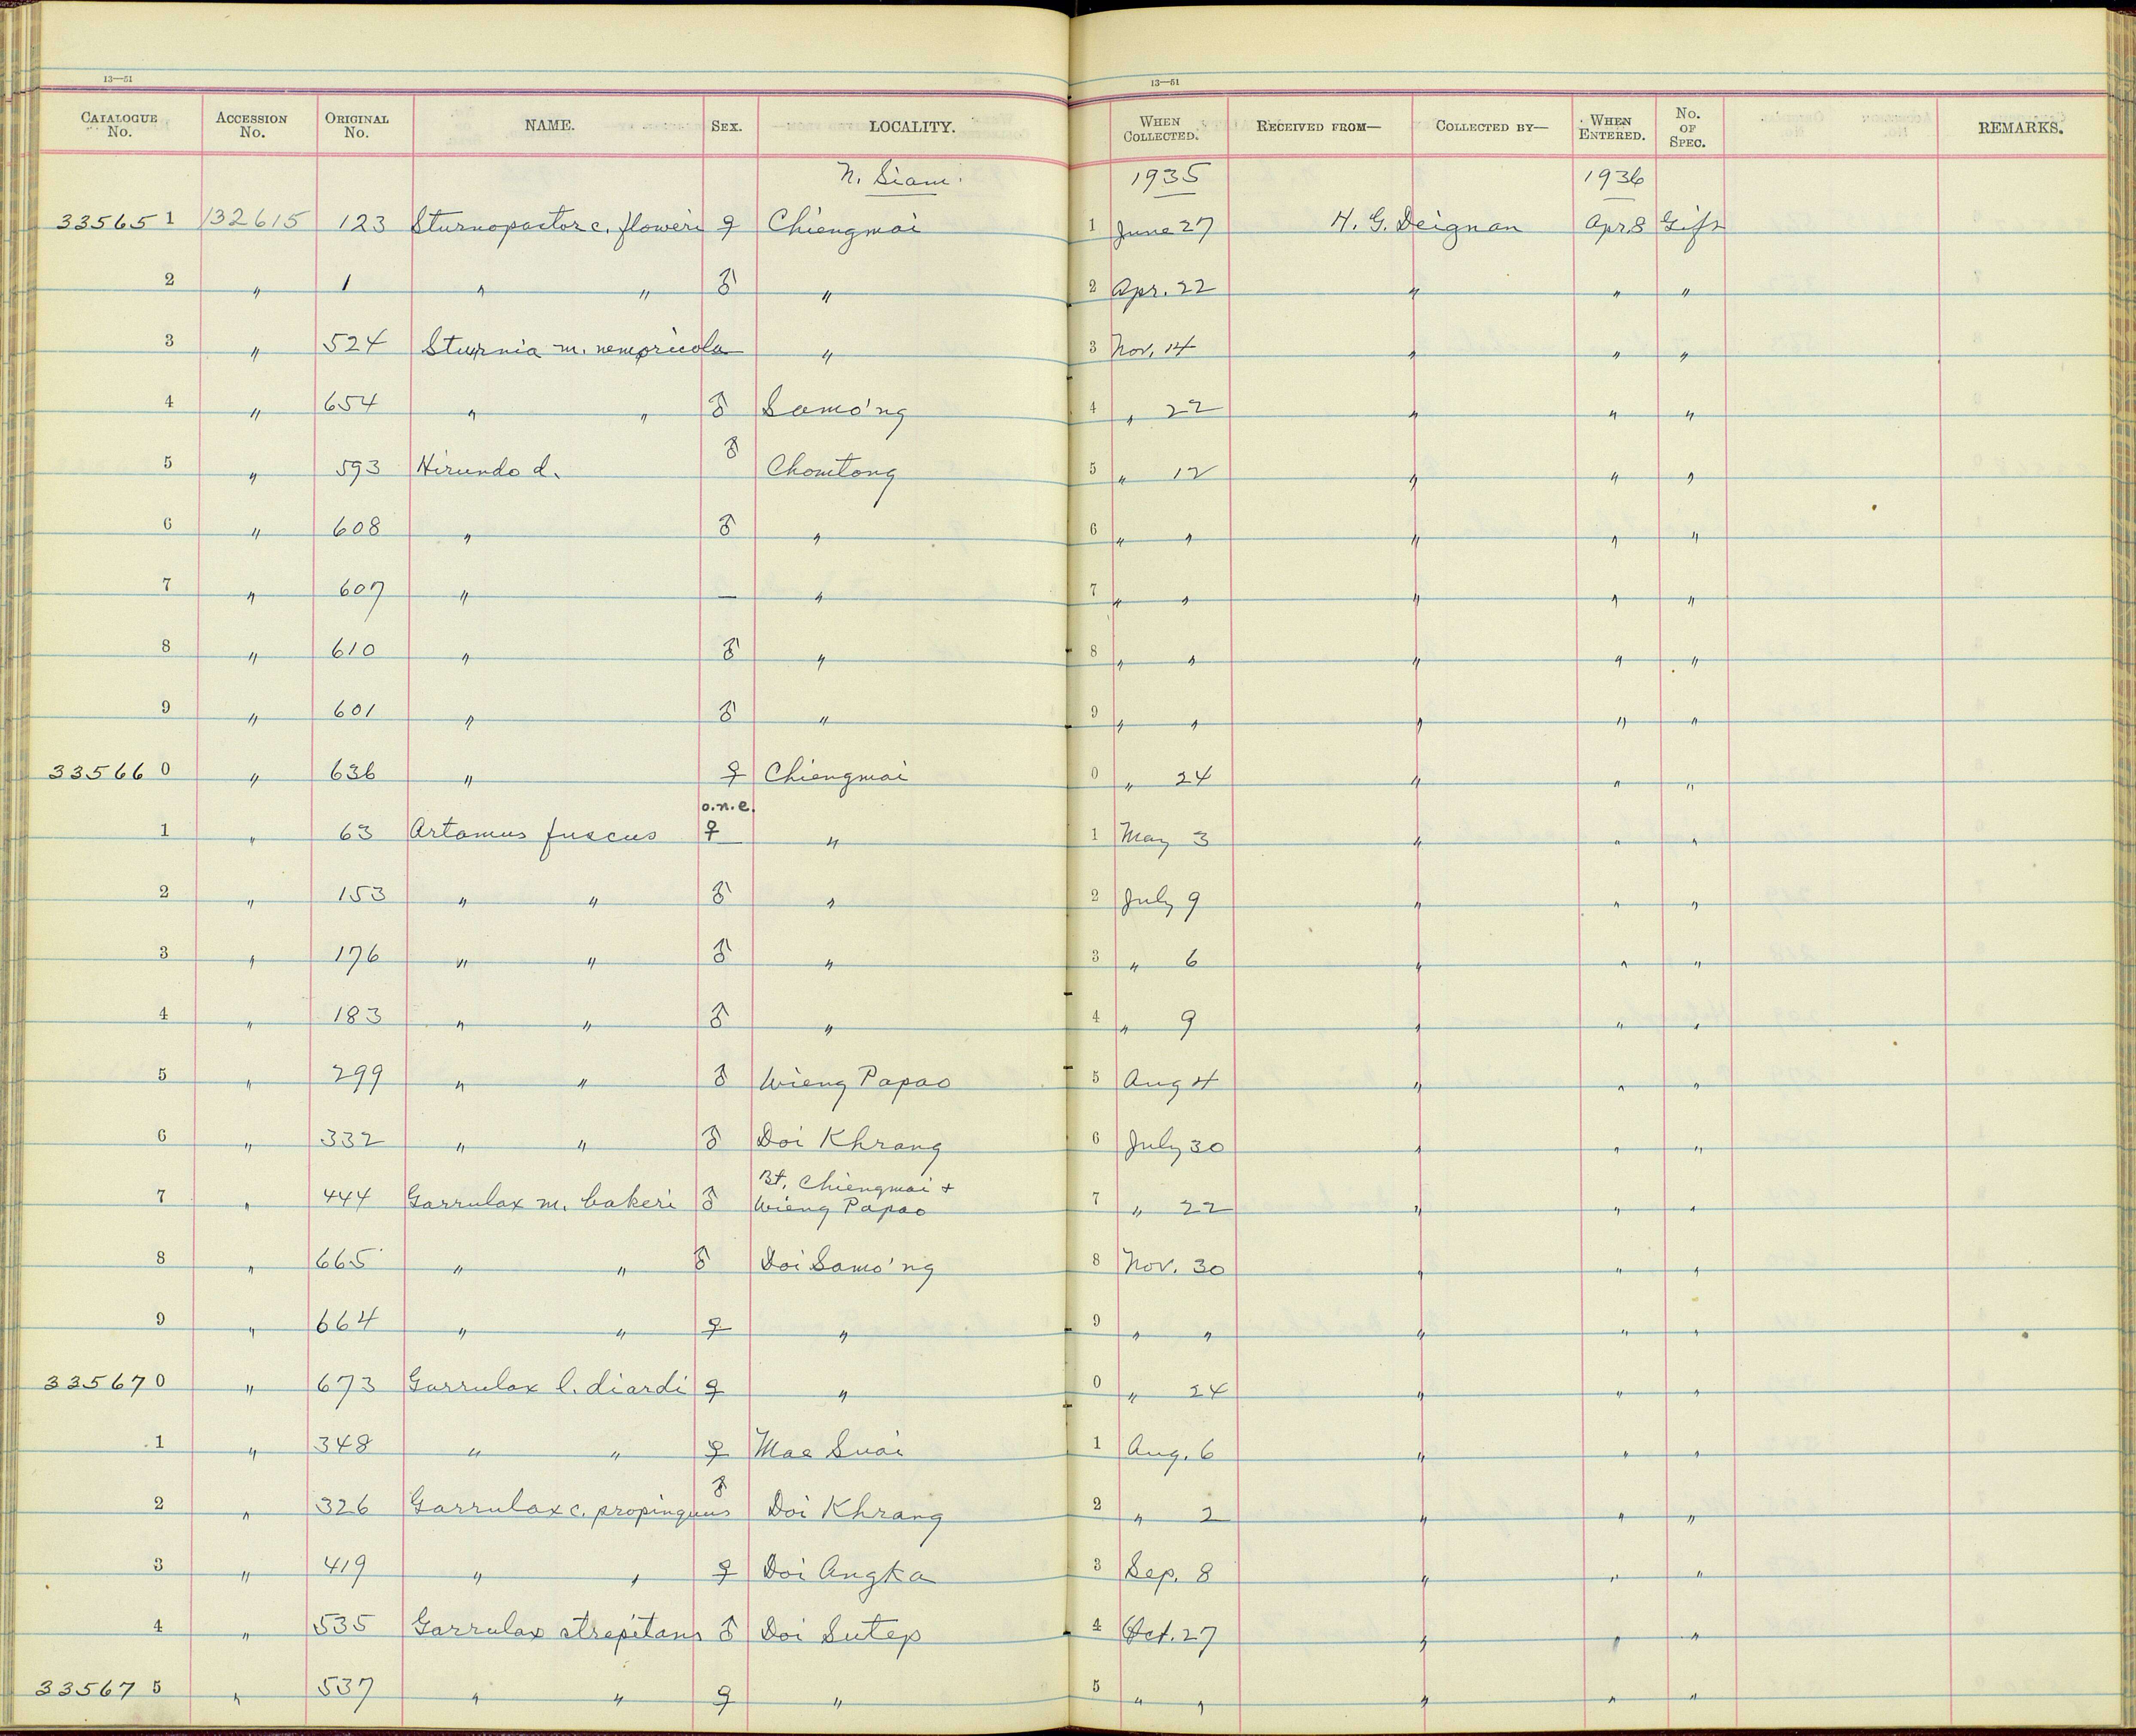 13—51 13—51
CATALOGUE No. ACCESSION No. ORIGINAL No. NAME. SEX. LOCALITY. WHEN COLLECTED. RECEIVED FROM— COLLECTED BY— WHEN ENTERED. No. OF SPEC. REMARKS.
N. Siam. 1935 1936
33565 1 132615 123 Sturnopastor c. floweri ♀ Chiengmai 1 June 27 H. G. Deignan Apr 8 Gift
2 " 1 " " ♂ " 2 Apr. 22 " " "
3 " 524 Sturnia m. nemoricola " 3 Nov. 14 " " "
4 " 654 " " ♂ Samo'ng 4 " 22 " " "
5 " 593 Hirundo d. ♂ Chomtong 5 " 12 " " "
6 " 608 " ♂ " 6 " " " " "
7 " 607 " — " 7 " " " " "
8 " 610 " ♂ " 8 " " " " "
9 " 601 " ♂ " 9 " " " " "
33566 0 " 636 " ♀ Chiengmai 0 " 24 " " "
o.n.e.
1 " 63 Artamus fuscus ♀ " 1 May 3 " " "
2 " 153 " " ♂ " 2 July 9 " " "
3 " 176 " " ♂ " 3 " 6 " " "
4 " 183 " " ♂ " 4 " 9 " " "
5 " 299 " " ♂ Wieng Papao 5 Aug 4 " " "
6 " 332 " " ♂ Doi Khrang 6 July 30 " " "
Bt. Chiengmai +
7 " 444 Garrulax m. bakeri ♂ Wieng Papao 7 " 22 " " "
8 " 665 " " ♂ Doi Samo'ng 8 Nov. 30 " " "
9 " 664 " " ♀ " 9 " " " " "
33567 0 " 673 Garrulax l. diardi ♀ " 0 " 24 " " "
1 " 348 " " ♀ Mae Suai 1 Aug. 6 " " "
2 " 326 Garrulax c. propinquus ♂ Doi Khrang 2 " 2 " " "
3 " 419 " " ♀ Doi Angka 3 Sep. 8 " " "
4 " 535 Garrulax strepitans ♂ Doi Sutep 4 Oct. 27 " " "
33567 5 " 537 " " ♀ " 5 " " " " "